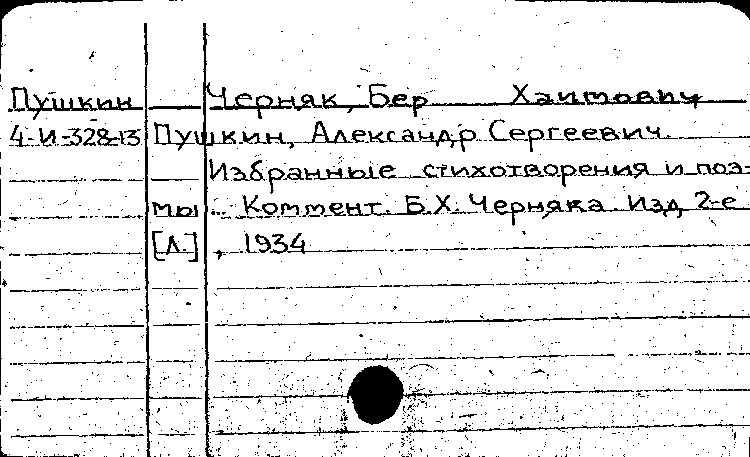 Пушкин Черняк, Бер Хаимович
4-И-328-13 Пушкин, Александр Сергеевич.
Избранные стихотворения и поэ-
мы... Коммент. Б.Х. Черняка. Изд. 2-е
[Л.], 1934